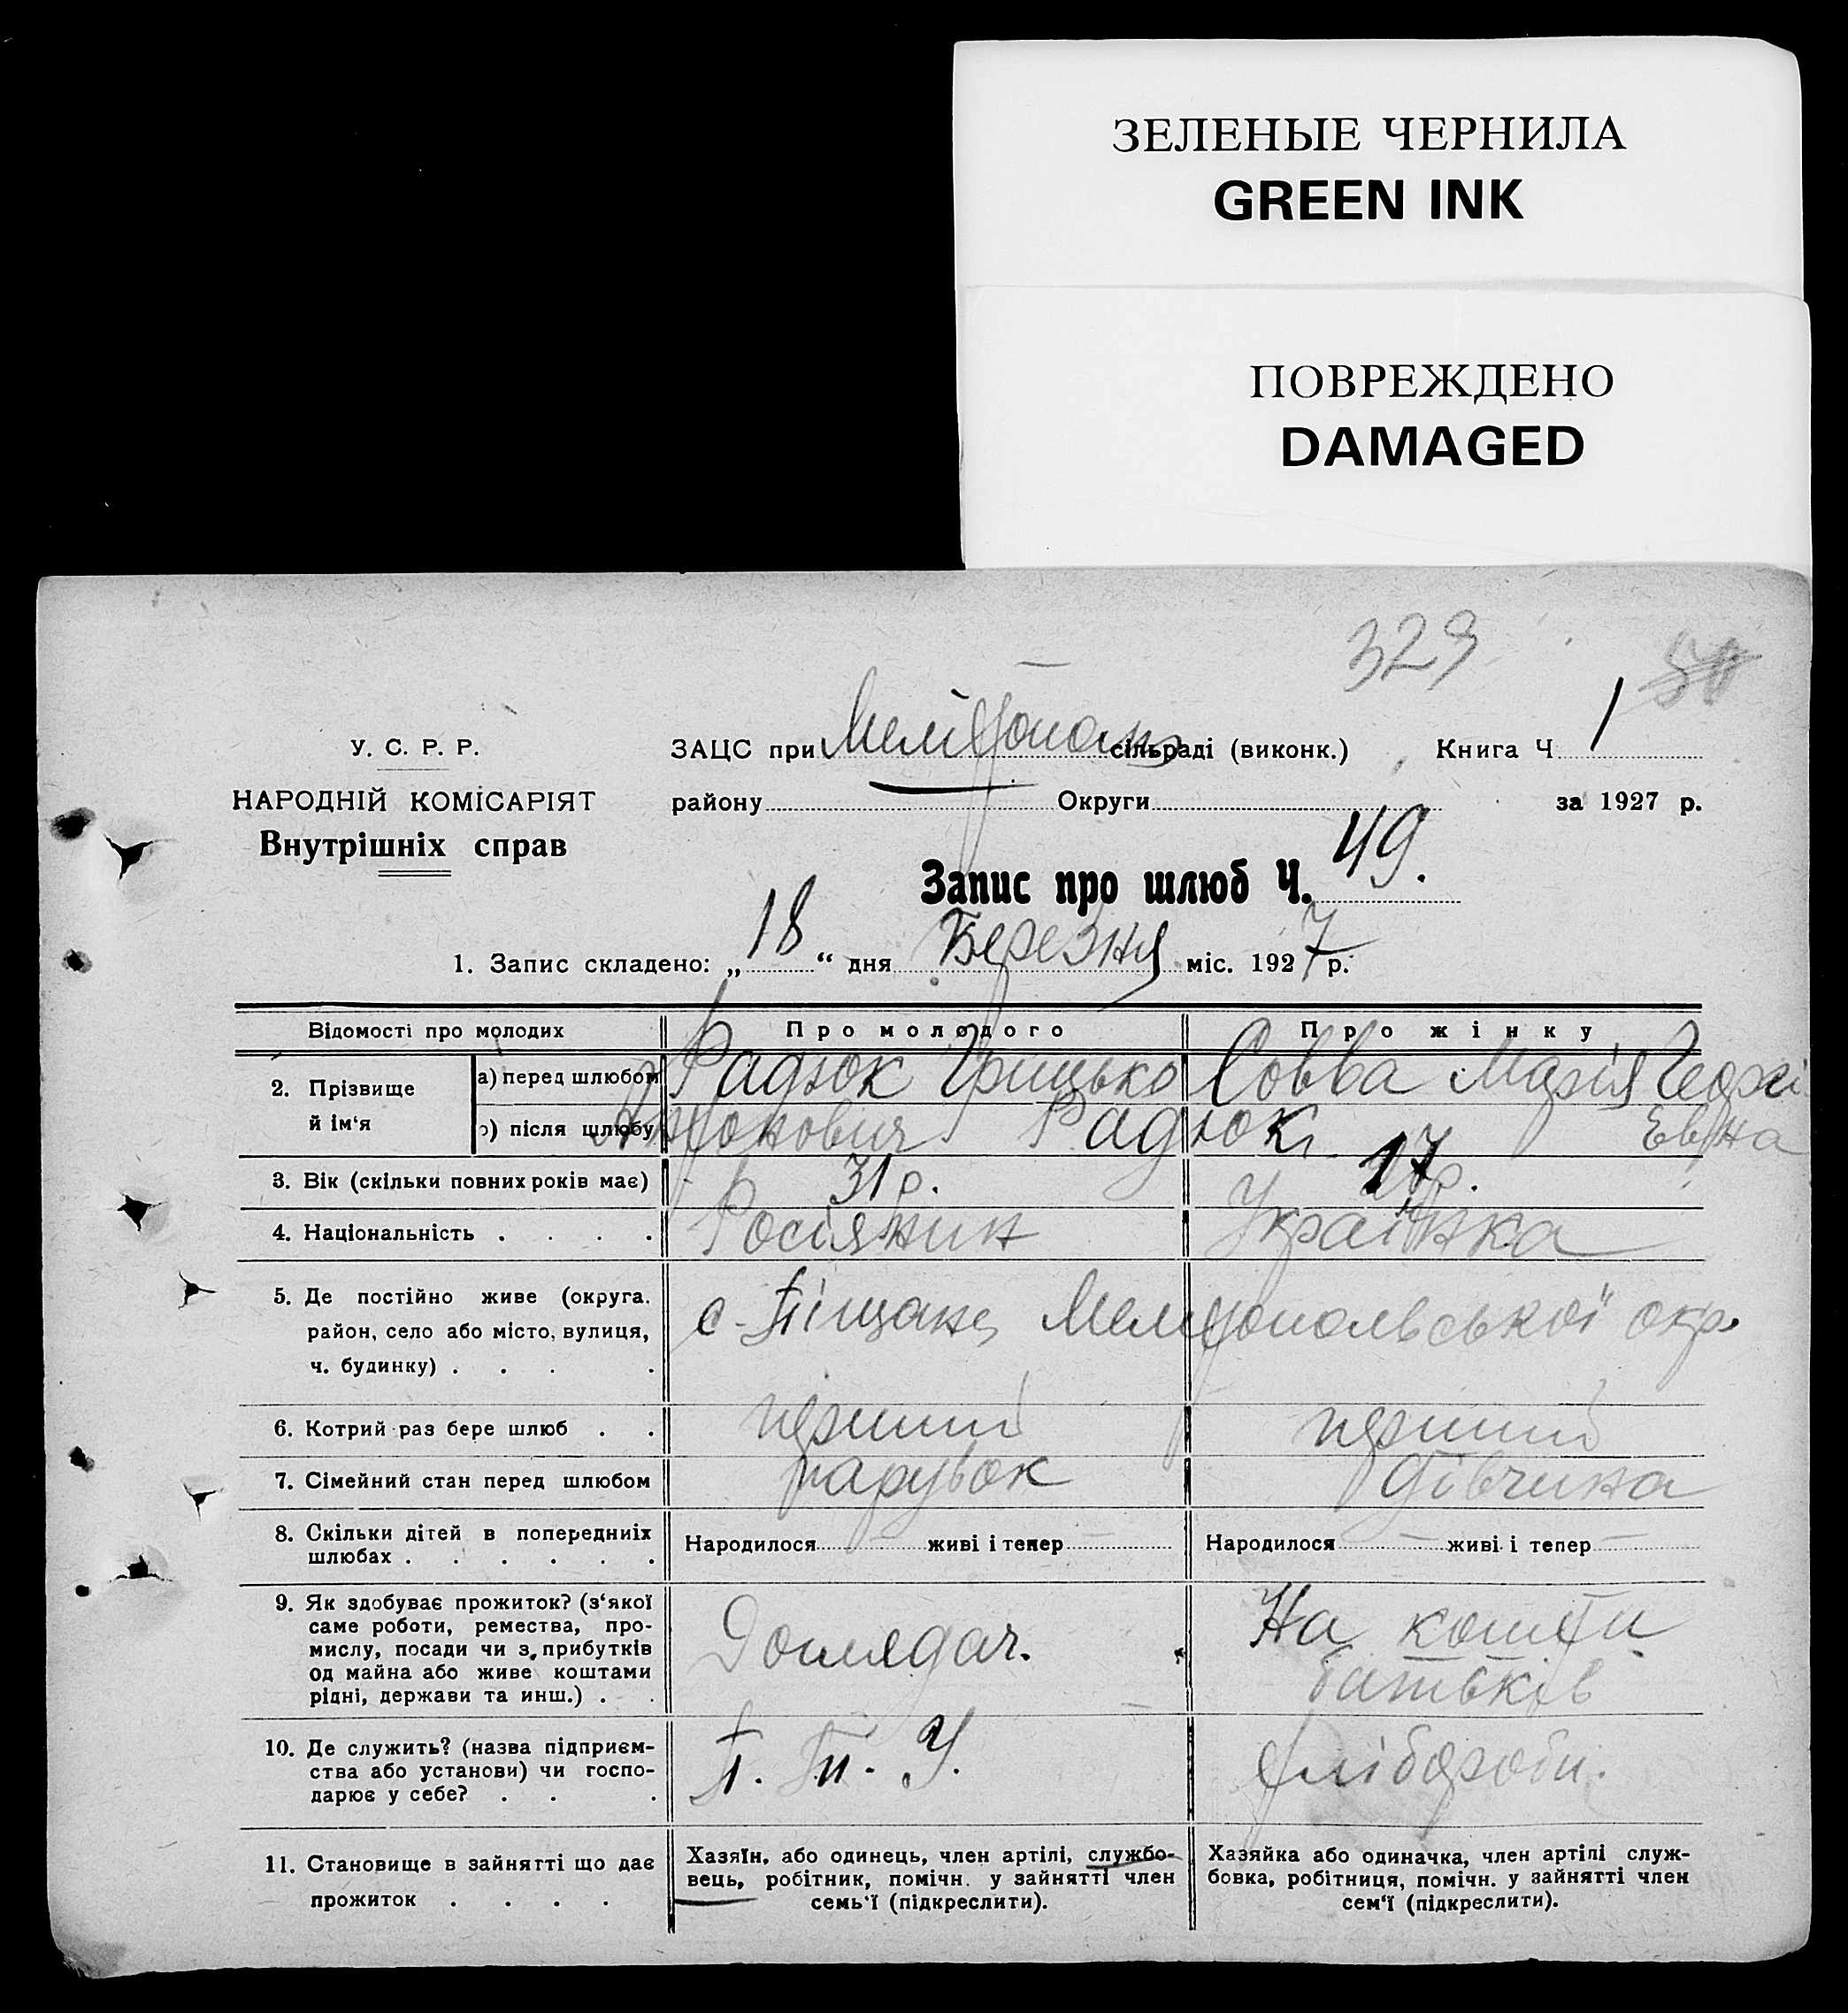 ЗЕЛЕНЫЕ ЧЕРНИЛА
GREEN INK
ПОВРЕЖДЕНО
DAMAGED
329 50
У. С. Р. Р.
НАРОДНІЙ КОМІСАРІЯТ
Внутрішніх справ
ЗАЦС при сільраді (виконк.) Книга Ч 1
району Округи за 1927 р.
Запис про шлюб Ч. 49.
1. Запис складено: „ 18 “ дня Березня міс. 1927 р.
Відомості про молодих Про молодого Про жінку
2. Прізвище й ім‘я
а) перед шлюбом Радюк Грицько Совва Марія Георгі
евна
після шлюбу Радюки
3. Вік (скільки повних років має) 31 р. 17 р.
4. Національність . . . . Росіянин Українка
5. Де постійно живе (округа,
район, село або місто, вулиця,
ч. будинку) . . . .
с. Піщане Мелітопольської окр.
6. Котрий раз бере шлюб . . перший перший
7. Сімейний стан перед шлюбом парубок дівчина
8. Скільки дітей в попередниіх
шлюбах . . . . . .
Народилося живі і тепер Народилося живі і тепер
9. Як здобуває прожиток? (з‘якої
саме роботи, ремества, про-
мислу, посади чи з прибутків
од майна або живе коштами
рідні, держави та инш.) . .
Доглядач.
На кошти
батьків
10. Де служить? (назва підприєм-
ства або установи) чи госпо-
дарює у себе? . . .
хлібороби.
11. Становище в зайнятті що дає
прожиток . . . .
Хазяїн, або одинець, член артілі, службо-
вець, робітник, помічн. у зайнятті член
семь‘ї (підкреслити).
Хазяйка або одиначка, член артілі служ-
бовка, робітниця, помічн. у зайнятті член
сем‘ї (підкреслити).